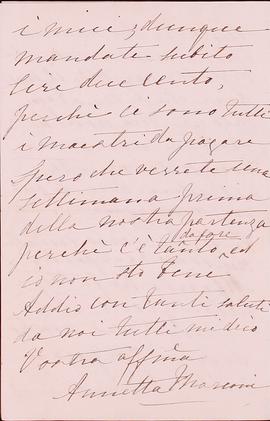 i miei, dunque
mandate subito
lire due cento,
perchè ci sono tutti
i maestri da pagare
Spero che verrete una
settimana prima
della nostra partenza
perchè c'è tanto da fare, ed
io non sto bene
Addio con tanti saluti
da noi tutti mi dico
Vostra affma
Annetta Marconi